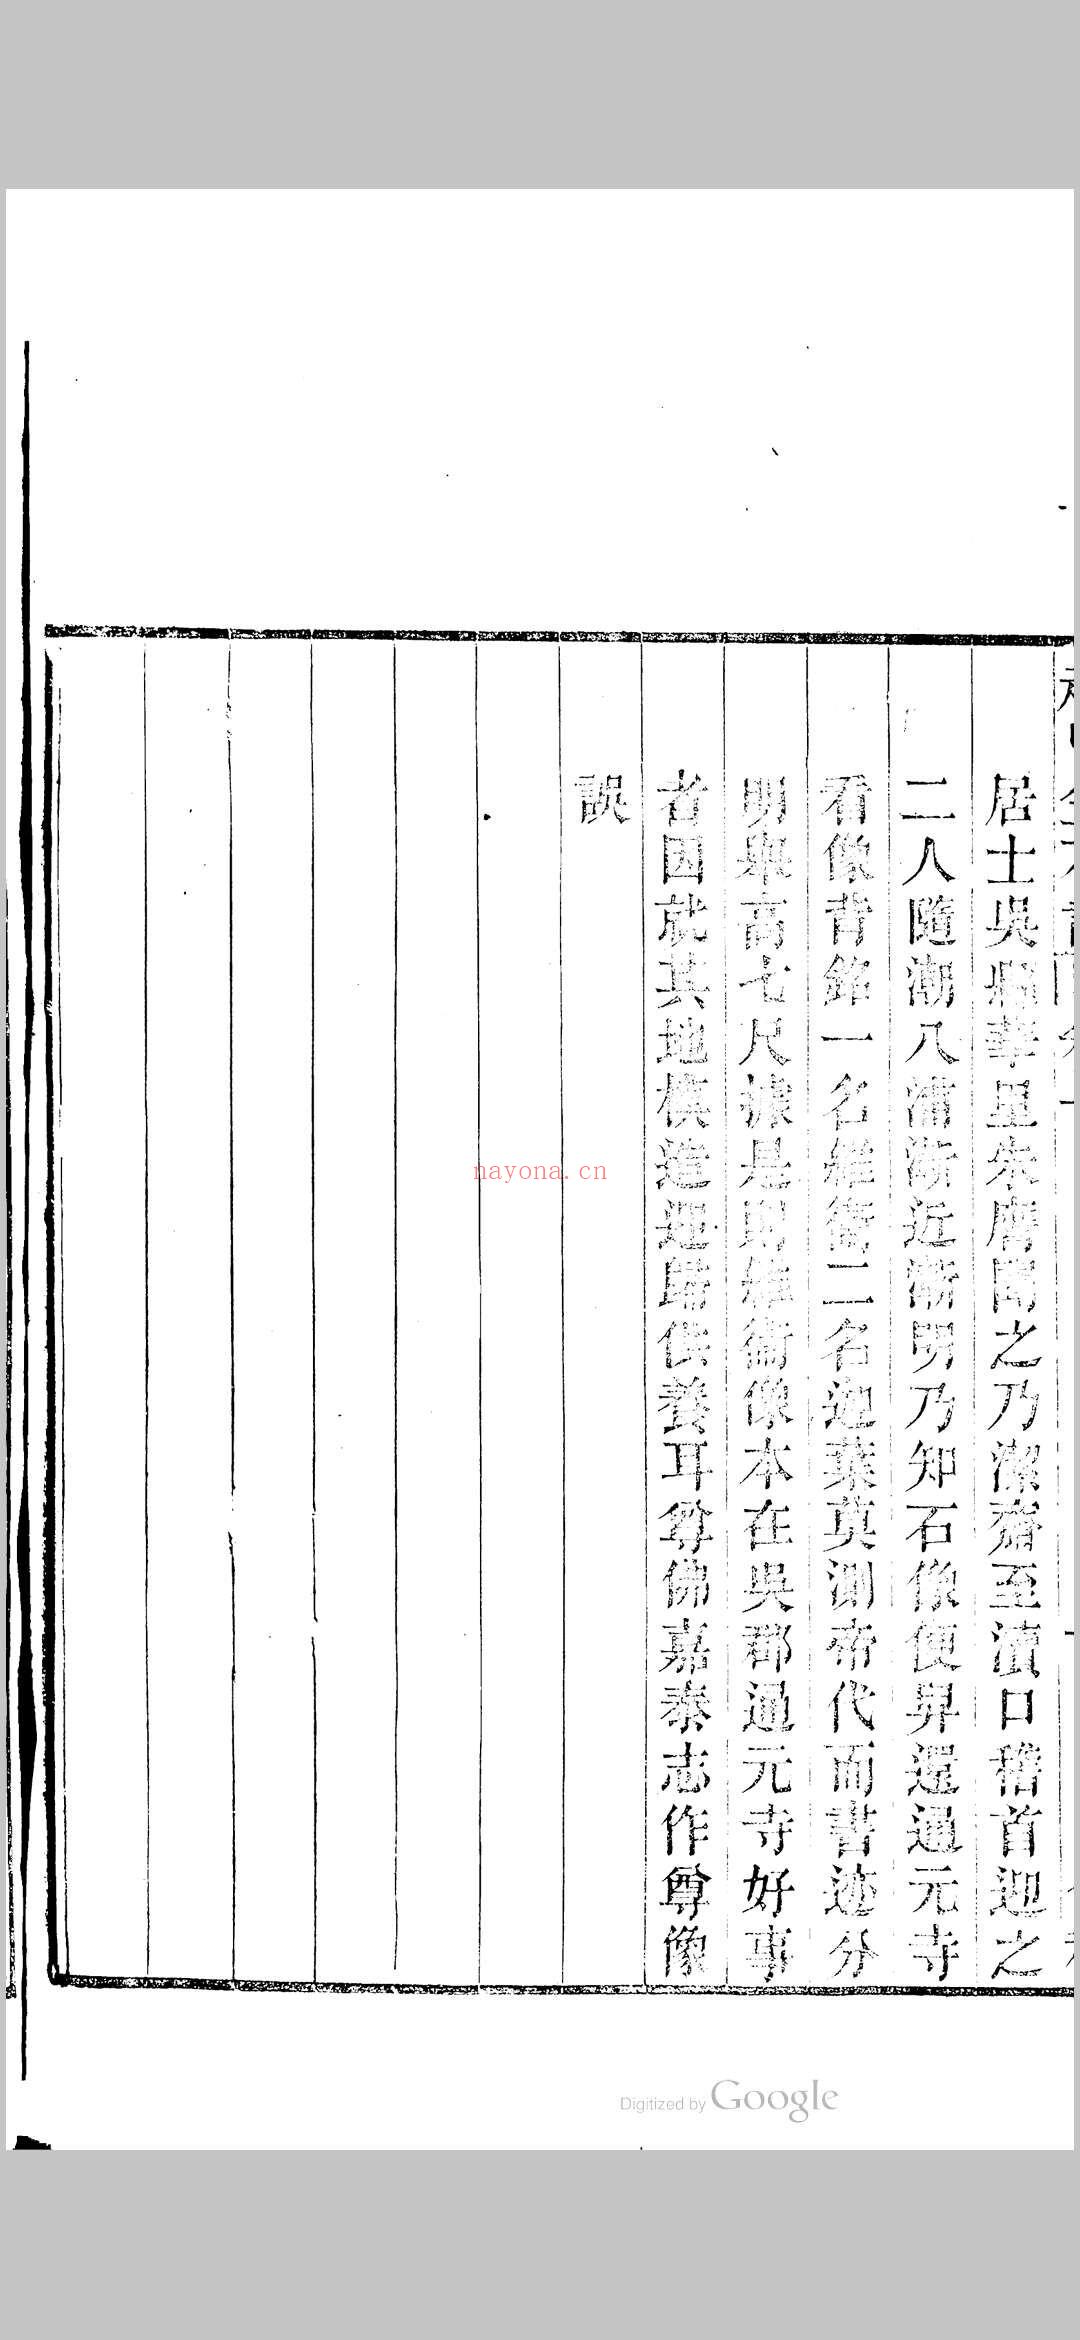 居士吳縣華里朱膺聞之乃潔齋至瀆口稽首迎之
二人隨潮入浦漸近漸明乃知石像便舁還通元寺
看像背銘一名維衛二名迦葉莫測帝代而書迹分
明舉高七尺據是則維衛像本在吳郡通元寺好事
者因就其地模造迎歸供養耳尊佛嘉泰志作尊像
誤
nayona.cn
Digitized by Google